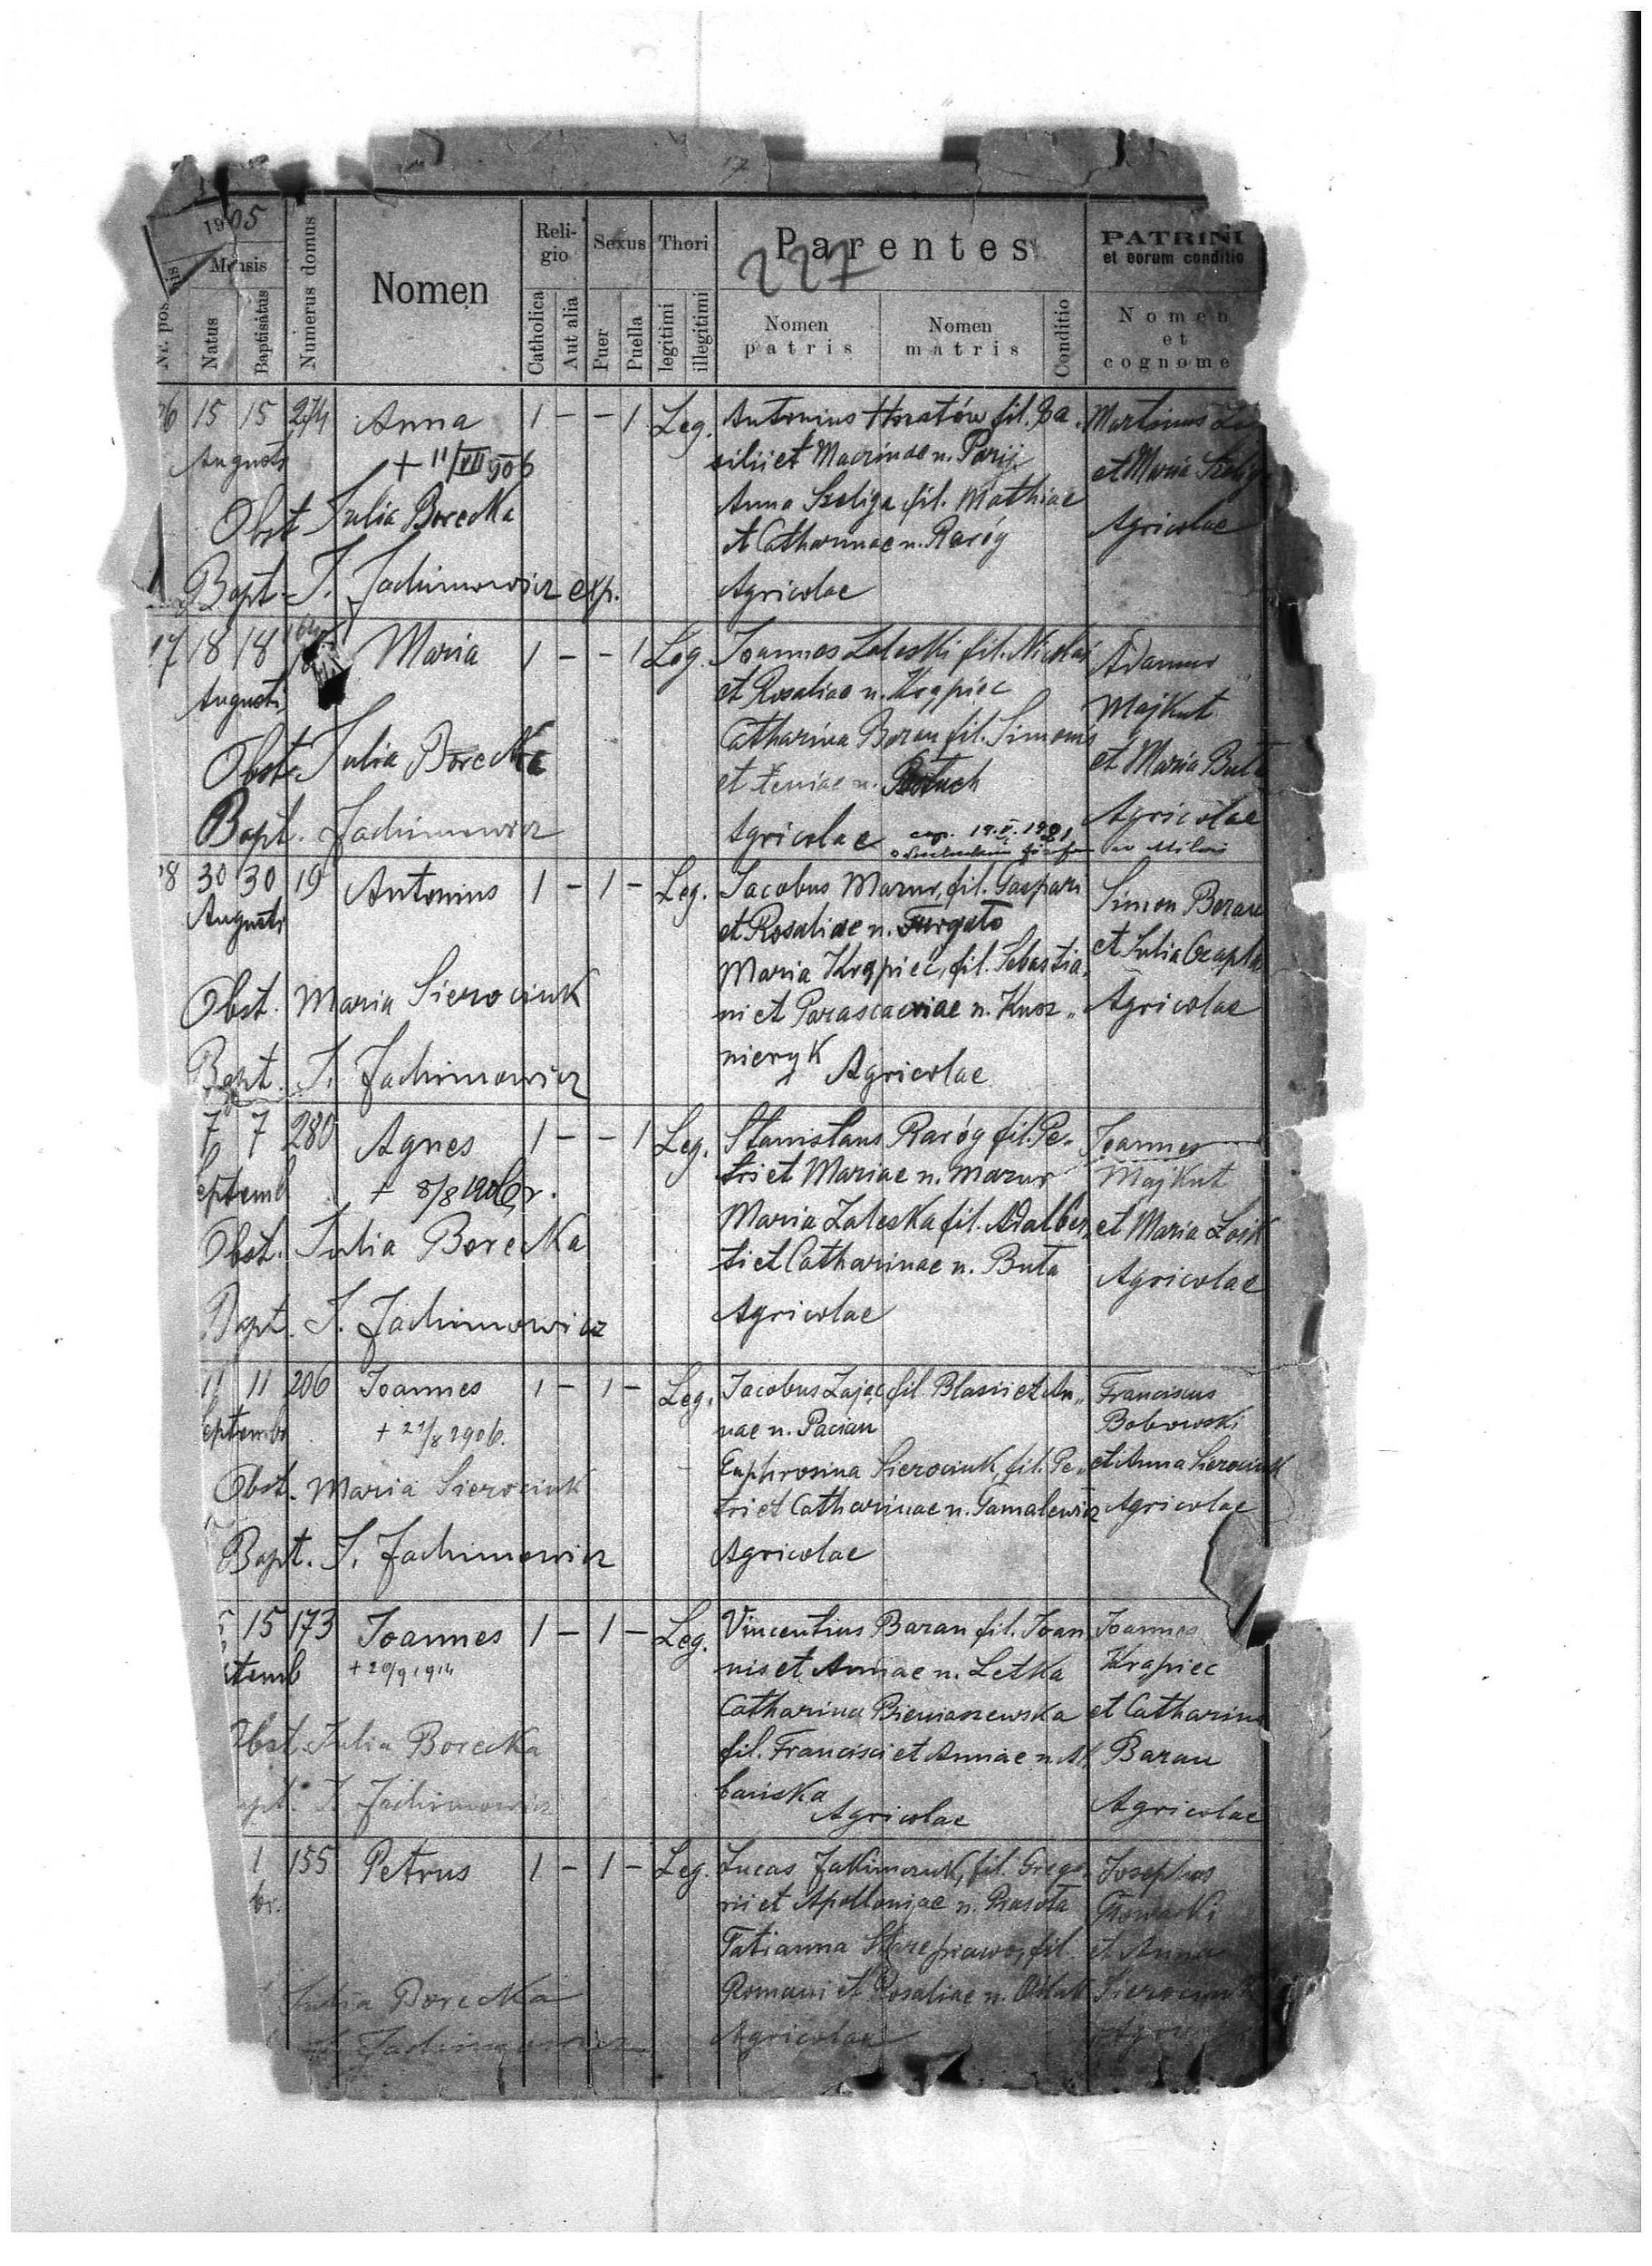 1905
Mensis
Natus
Baptisatus
Numerus domus
Nomen
Reli-
gio
Catholica
Aut alia
Sexus
Puer
Puella
Thori
legitimi
illegitimi
Parentes
227
Nomen
patris
Nomen
matris
Conditio
PATRINI
et eorum conditio
Nomen
et
cognome
6 15 15 274 Anna 1 - - 1 Leg.
Augusti
+ 11/VII 906
Obst. Julia Borecka
Bapt. J. Jachimowicz exp.
Antonius Horatów fil. Ba
silii et Macrinae n. Parij
Anna Szeliga fil. Mathiae
et Catharinae n. Raróg
Agricolae
Martinus
et Maria Szelig
Agricolae
17 18 18 Maria 1 - - 1 Leg.
Augusti
Obst. Julia Borecka
Bapt. Jachimowicz
Joannes Zaleski fil. Nicolai
et Rosaliae n. Krąpiec
Catharina Baran fil. Simonis
et Xeniae n.
Agricolae
Adamus
Majkut
et Maria Buta
Agricolae
8 30 30 19 Antonius 1 - 1 - Leg.
Augusti
Obst. Maria Sierociuk
Bapt. J. Jachimowicz
Jacobus Mazur, fil. Gaspari
et Rosaliae n. Furgało
Maria Krąpiec, fil. Sebastia„
ni et Parascaeviae n. Kusz„
nieryk Agricolae
Simon Baran
et Julia Czapla
Agricolae
7 7 280 Agnes 1 - - 1 Leg.
eptemb
+ 8/8 1906 r.
Obst. Julia Borecka
Bapt. J. Jachimowicz
Stanislaus Raróg fil. Pe„
tri et Mariae n. Mazur
Maria Zaleska fil. Adalber„
ti et Catharinae n. Buta
Agricolae
Joannes
Majkut
et Maria Łoik
Agricolae
11 11 206 Joannes 1 - 1 - Leg.
eptembr
Obst. Maria Sierociuk
Bapt. J. Jachimowicz
Jacobus Zając fil. Blasii et An„
nae n. Pacian
Euphrosina Sierociuk, fil. Pe„
tri et Catharinae n. Gamalewicz
Agricolae
Franciscus
Bobrowski
et Anna Sierociuk
Agricolae
15 173 Joannes 1 - 1 - Leg.
temb
+ 20/9 1914
Obst. Julia Borecka
apt. J. Jachimowicz
Vincentius Baran fil. Joan
nis et Annae n. Letka
Catharina Bieniaszewska
fil. Francisci et Annae n. Al
bańska
Agricolae
Joannes
Krąpiec
et Catharina
Baran
Agricolae
1 155 Petrus 1 - 1 - Leg.
br.
Julia Borecka
J. Jachimowicz
Lucas Jakimczuk, fil. Grego
rii et Apolloniae n. Prasoła
Tatianna fil.
Romani et Rosaliae n.
Agricolae
Josephus
Głowacki
et Anna
Sierociuk